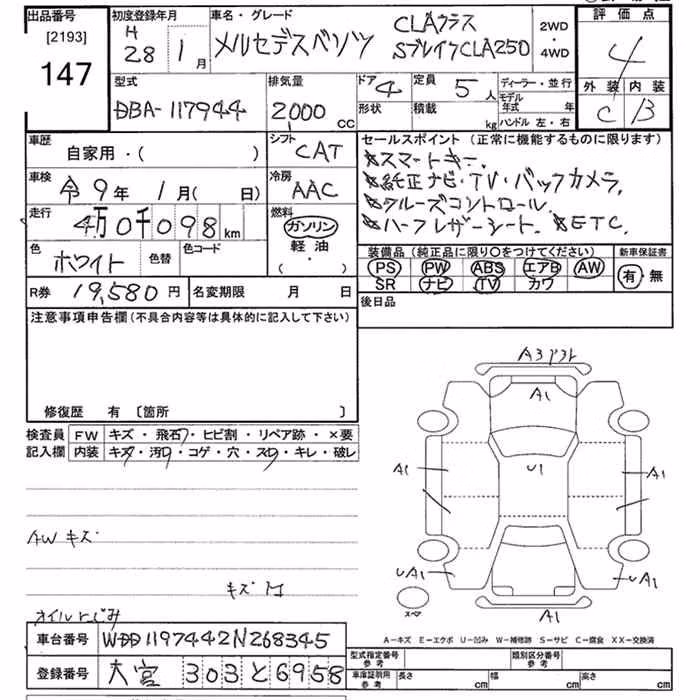 出品番号
[2193]
147
初度登録年月
H
28 1月
車名・グレード
メルセデスベンツ
CLAクラス
SブレイクCLA250
2WD
・
4WD
評価点
4
外装 内装
C B
型式
DBA-117944
排気量
2000 CC
ドア 4
形状
定員 5人
積載 kg
ディーラー・並行
モデル年式 年
ハンドル 左・右
車歴
自家用・( )
シフト
CAT
車検
令9年 1月( 日)
冷房
AAC
走行
4万0千098 km
燃料
ガソリン
軽油
( ・ )
色
ホワイト
色替
色コード
R券 19,580円
名変期限 月 日
セールスポイント(正常に機能するものに限ります)
★スマートキー.
★純正ナビ・TV・バックカメラ.
★クルーズコントロール.
★ハーフレザーシート. ★ETC.
装備品(純正品に限り○をつけてください)
新車保証書
PS PW ABS エアB AW
SR ナビ TV カワ
有・無
後日品
注意事項申告欄(不具合内容等は具体的に記入して下さい)
修復歴 有 〔箇所 〕
検査員
記入欄
FW キズ・飛石・ヒビ割・リペア跡・×要
内装 キズ・汚れ・コゲ・穴・スレ・キレ・破レ
AWキズ
キズ
オイルにじみ
A3
A1
A1
U1
A1
UA1
UA1
A1
スペア
A－キズ E－エクボ U－凹み W－補修跡 S－サビ C－腐食 XX－交換済
車台番号 WDD1179442N268345
登録番号 大宮 303と6958
型式指定番号
参考
類別区分番号
参考
車庫証明用
参考
長さ cm
幅 cm
高さ cm